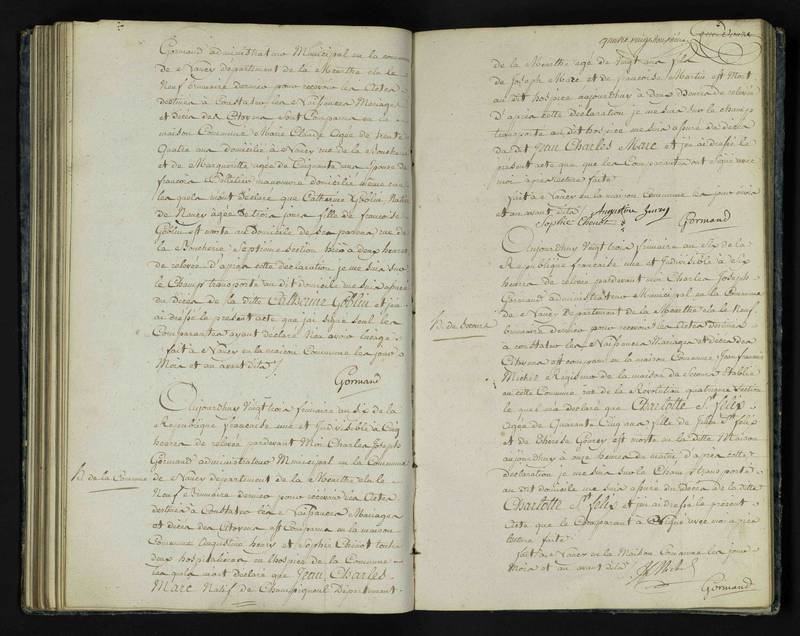 Gormand administrateur Municipal en la commune
de Nancy département de la Meurthe elu le
Neuf Brumaire dernier pour recevoir les Actes
destinés à Constater les Naissances Mariages
et décès des Citoyens sont Comparus en la
maison Commune Marie Claude agée de trente
Quatre ans domiciliée à Nancy rue de la Boucherie
et de Marguerite agée de Cinquante ans Epouse de
francois manoeuvre domicilié même rue
les quels m'ont déclaré que Catherine Goblin Native
de Nancy agée de trois jours fille de francois
Goblin est morte au domicile de ses parens rue de
la Boucherie Septieme Section hier à deux heures
de relevée d'après cette déclaration je me suis sur
le Champ transporté au dit domicile me suis assuré
du Décès de la ditte Catherine Goblin et j'en
ai dressé le present acte que j'ai signé seul les
Comparantes ayant déclaré
fait à Nancy en la maison Commune les jour
Mois et an avant dits
Gormand
Aujourdhuy Vingt trois frimaire an Six de la
République francaise une et Indivisible à Cinq
heures de relevée pardevant Moi Charles Joseph
Gormand administrateur Municipal en la Commune
h. de la Commune
de Nancy département de la Meurthe elu le
Neuf Brumaire dernier pour recevoir les Actes
destinés à Constater les Naissances Mariages
et décès des Citoyens est Comparu en la maison
Commune Augustine henry et Sophie Chenot toutes
deux hospitalieres en l'hospice de la Commune
les quels m'ont déclaré que Jean Charles
Marc Natif de Champigneul Département
quatre vingt
de la Meurthe agé de Vingt ans fils
de Joseph Marc et de francoise Martin est Mort
au dit hospice aujourdhuy à Deux heures de relevée
D'après cette déclaration je me suis sur le champ
transporté au dit hospice me suis assuré du décès
du dit Jean Charles Marc et j'en ai dressé le
présent acte que les Comparantes ont signé avec
moi après lecture faite
fait à Nancy en la maison Commune les jour mois
et an avant dits Augustine henry
Sophie Chenot
Gormand
Aujourdhuy Vingt trois frimaire an Six de la
République francaise une et Indivisible à Six
heures de relevée pardevant moi Charles Joseph
Gormand administrateur Municipal en la Commune
de Nancy departement de la Meurthe elu le Neuf
h. du Secours
brumaire dernier pour recevoir les Actes destinés
à constater les Naissances Mariages et décès des
Citoyens est comparu en la maison Commune Jean francois
Michel Regisseur de la maison de Secours Etablie
en cette Commune rue de la Revolution quatrieme Section
le quel m'a déclaré que Charlotte St. felix
agée de Quarante Cinq ans fille de St. felix
et de Therese est morte en la Ditte Maison
aujourdhuy à onze heures du matin d'après cette
Declaration je me suis sur le Champ transporté
au dit domicile me suis assuré du Décès de la ditte
Charlotte St. felix et j'en ai dressé le présent
Acte que le Comparant a Signé avec moi après
lecture faite
fait à Nancy en la Maison Commune les jour
mois et an avant dits
Gormand